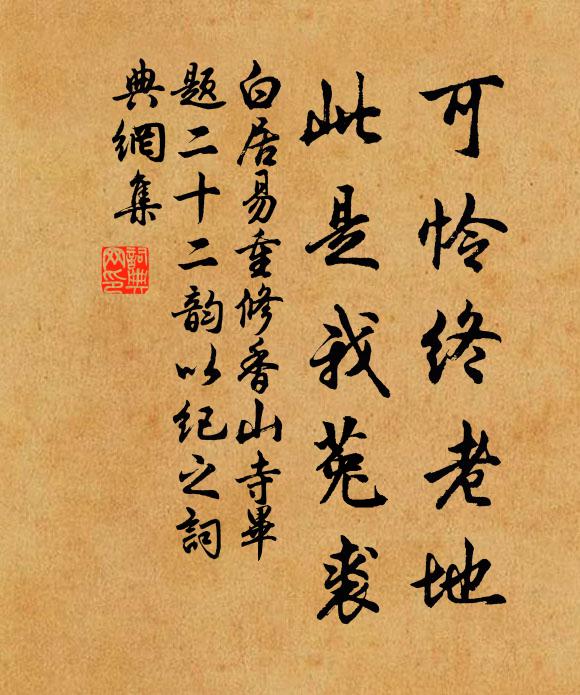 可怜终老地
此是我菟裘
白居易重修香山寺畢
题二十二韵以纪之詞
典網集
詞典网印